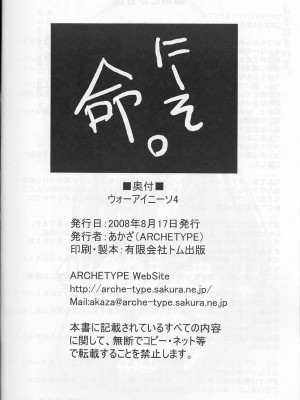 にーそ。
命
■奥付■
ウォーアイニーソ4
発行日：2008年8月17日発行
発行者：あかざ（ARCHETYPE）
印刷・製本：有限会社トム出版
ARCHETYPE WebSite
http://arche-type.sakura.ne.jp/
Mail:akaza@arche-type.sakura.ne.jp
本書に記載されているすべての内容
に関して、無断でコピー・ネット等
で転載することを禁止します。